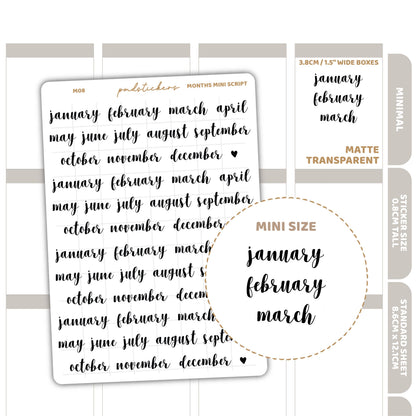 M08 pndstickers MONTHS MINI SCRIPT
january february march april
may june july august september
october november december
january february march april
may june july august september
october november december
january february march
may june july august
october november
january february march
may june july august
october november december
3.8CM / 1.5" WIDE BOXES
january
february
march
MATTE
TRANSPARENT
MINI SIZE
january
february
march
MINIMAL
STICKER SIZE
0.8CM TALL
STANDARD SHEET
8.6CM x 12.1CM